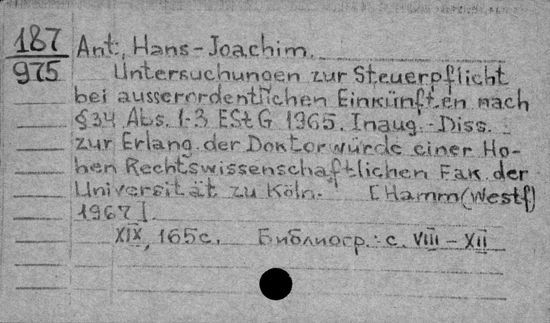 187 Ant:, Hans-Joachim.
975 Untersuchungen zur Steuerpflicht
bei ausserordentlichen Einkünften nach
§34 Abs. 1-3 EStG 1965. Inaug.-Diss.
zur Erlang. der Doktorwürde einer Ho-
hen Rechtswissenschaftlichen Fak. der
Universität zu Köln. [Hamm(Westf)
1967].
XIX, 165 с. Библиогр.: с. VIII-XII